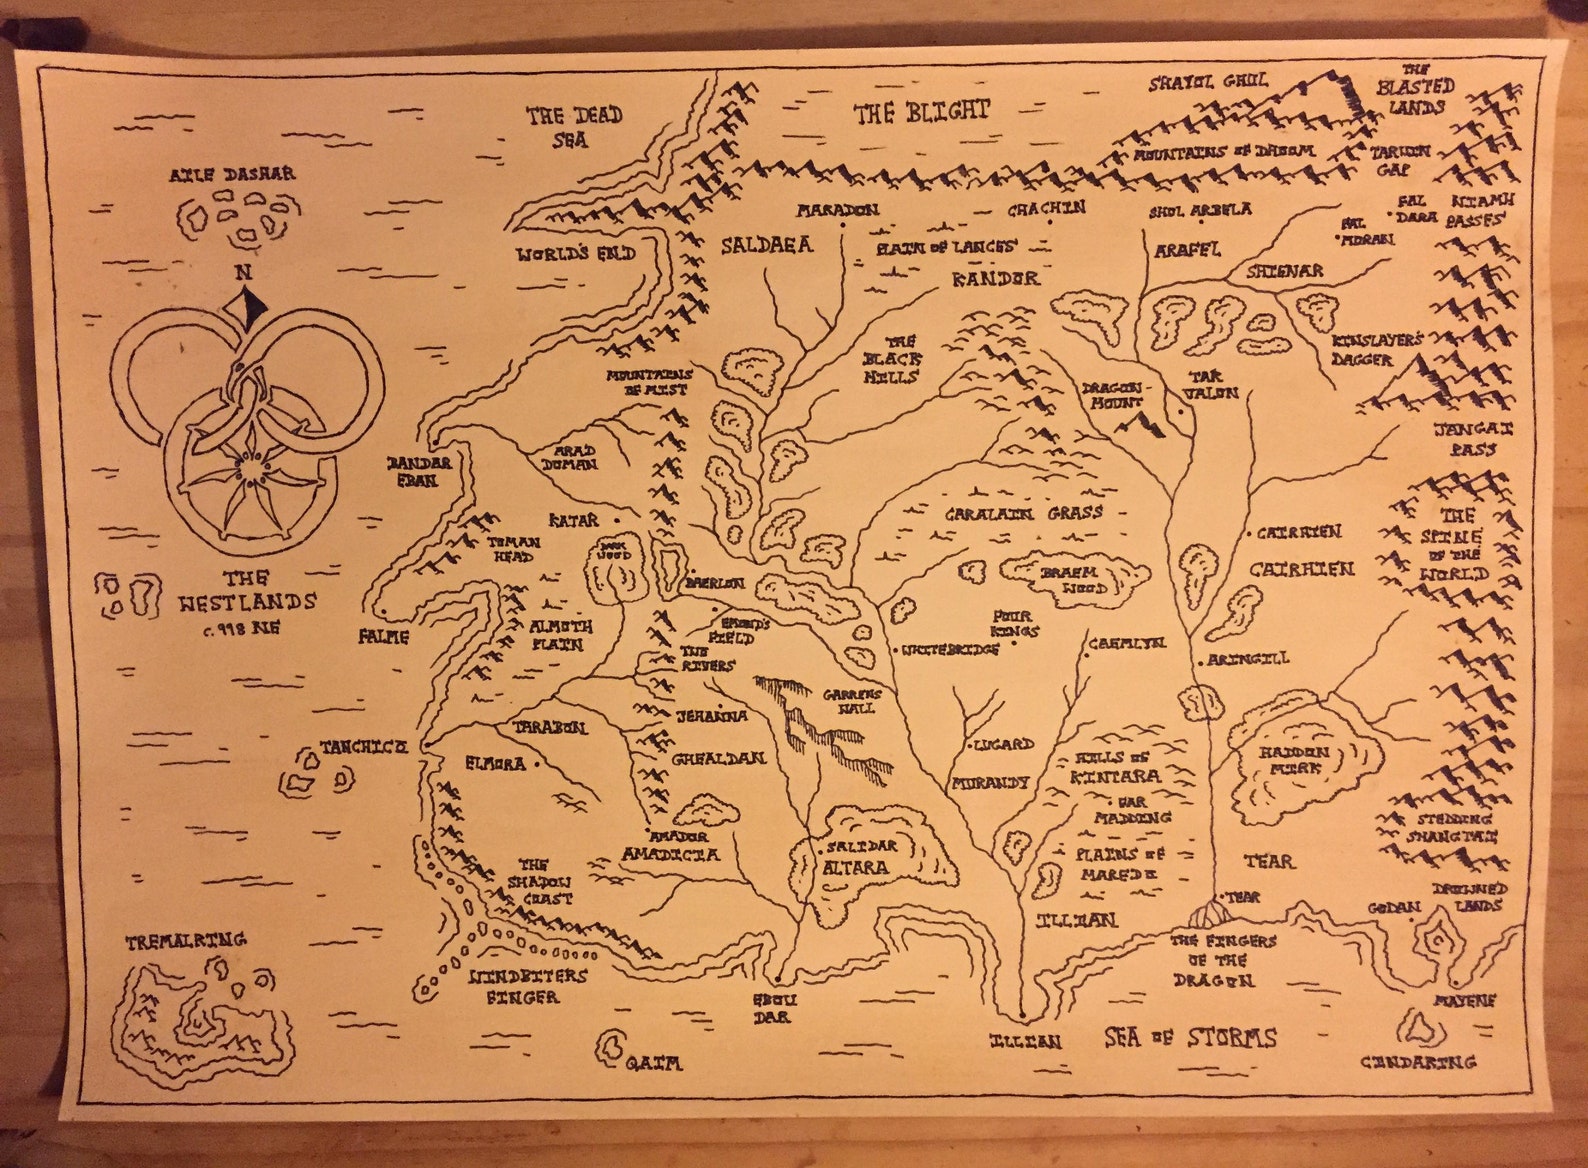 THE DEAD
SEA
THE BLIGHT
SHAYOL GHUL
THE
BLASTED
LANDS
MOUNTAINS OF DHOOM
TARWIN
GAP
AILE DASHAR
N
WORLD'S END
SALDAEA
MARADON
PLAIN OF LANCES
CHACHIN
KANDOR
SHOL ARBELA
ARAFEL
FAL
MORAN
FAL
DARA
NIAMH
PASSES
SHIENAR
KINSLAYER'S
DAGGER
THE
BLACK
HILLS
MOUNTAINS
OF MIST
DRAGON-
MOUNT
TAR
VALON
JANGAI
PASS
BANDAR
EBAN
ARAD
DOMAN
KATAR
TOMAN
HEAD
DARK
WOOD
BAERLON
CARALAIN GRASS
BRAEM
WOOD
CAIRHIEN
CAIRHIEN
THE
SPINE
OF THE
WORLD
THE
WESTLANDS
c. 998 NE
FALME
ALMOTH
PLAIN
EMOND'S
FIELD
TWO
RIVERS
WHITEBRIDGE
FOUR
KINGS
CAEMLYN
ARINGILL
GARRENS
WALL
JEHANNA
GHEALDAN
TARABON
TANCHICO
ELMORA
LUGARD
MURANDY
HILLS OF
KINTARA
HADDON
MIRK
FAR
MADDING
STEDDING
SHANGTAI
AMADOR
AMADICIA
SALIDAR
ALTARA
PLAINS OF
MAREDO
TEAR
THE
SHADOW
COAST
ILLIAN
TEAR
GODAN
DROWNED
LANDS
TREMALKING
WINDBITERS
FINGER
EBOU
DAR
THE FINGERS
OF THE
DRAGON
MAYENE
QAIM
ILLIAN
SEA OF STORMS
CINDAKING